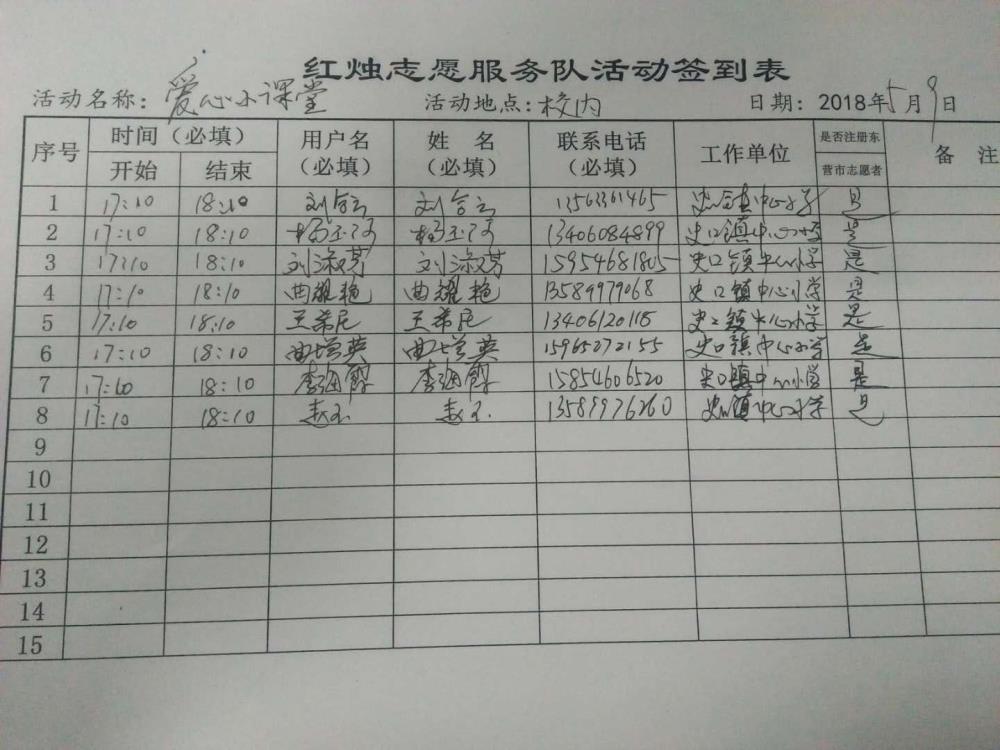 红烛志愿服务队活动签到表
活动名称：爱心小课堂 活动地点：校内 日期：2018年5月9日
序号 时间（必填） 用户名（必填） 姓 名（必填） 联系电话（必填） 工作单位 是否注册东营市志愿者 备 注
开始 结束
1 17:10 18:10 刘合云 刘合云 13563361465 史口镇中心小学 是
2 17:10 18:10 杨玉河 杨玉河 13406084899 史口镇中心小学 是
3 17:10 18:10 刘淑芳 刘淑芳 15954681805 史口镇中心小学 是
4 17:10 18:10 曲耀艳 曲耀艳 13589979068 史口镇中心小学 是
5 17:10 18:10 王希尼 王希尼 13406120115 史口镇中心小学 是
6 17:10 18:10 曲增英 曲增英 15965272155 史口镇中心小学 是
7 17:10 18:10 李 李 15854606520 史口镇中心小学 是
8 17:10 18:10 赵玉 赵玉 13589976260 史口镇中心小学 是
9
10
11
12
13
14
15